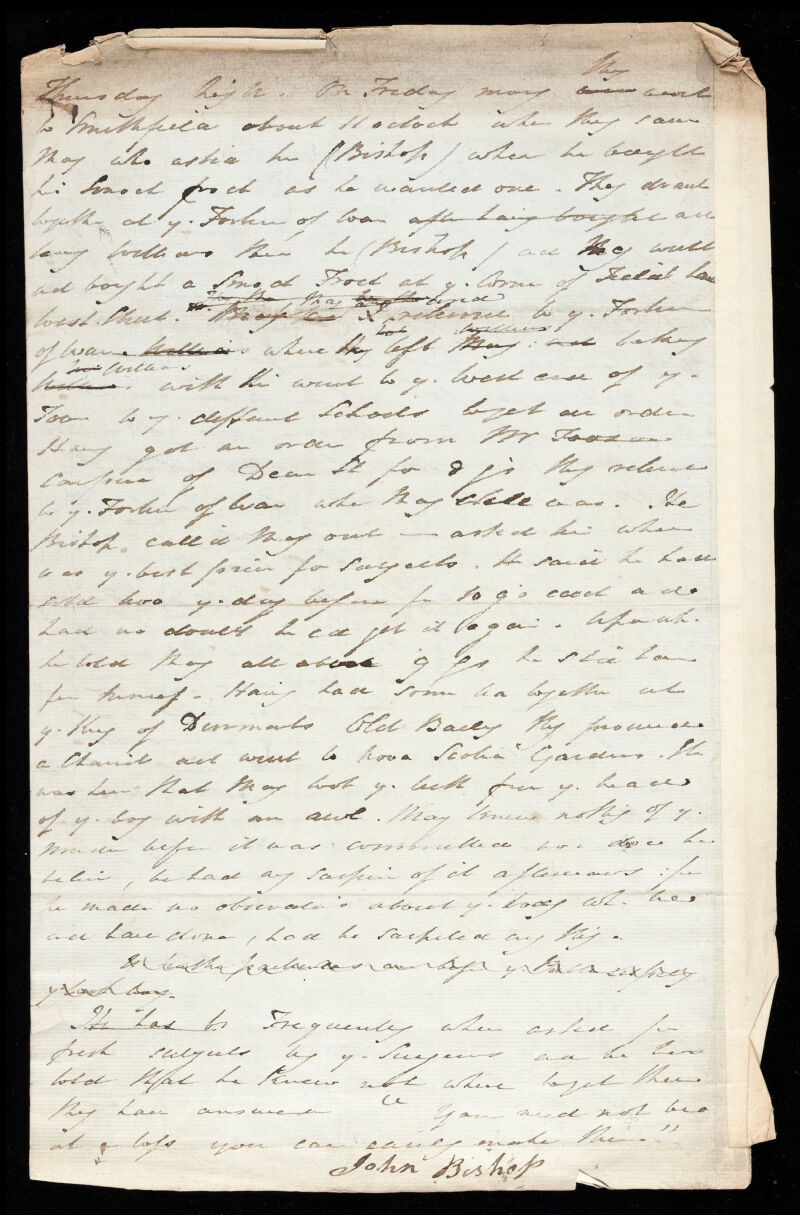 Thursday night. On Friday morng they went
to Smithfield about 11 oclock when they saw
May who asked him (Bishop) where he bought
his Smock frock as he wanted one. They drank
together at y. Fortune of War after having bought
Williams then he (Bishop) and May went
and bought a Smock Frock at y. Corner of Field Lane
West Street. and returned to y. Fortune
of War where they left May and taking
Williams with him went to y. West end of y.
Town to y. different Schools to get an order
Having got an order from Mr
Carpue of Dean St for 8 gs they returned
to y. Fortune of War where May still was. He
Bishop called May out — asked him where
was y. best price for subjects. He said he had
sold two y. day before for 10 gs each and
had no doubt he cd get it again. Upon wh.
he told May all above 9 gs he shd have
for himself. Having had some tea together at
y. King of Denmarks Old Baily they procured
a Chariot and went to Nova Scotia Gardens. It
was here that May took y. teeth from y. head
of y. boy with an awl. May knew nothing of y.
murder before it was committed nor does he
believe, he had any suspicion of it afterwards: for
he made no observations about y. body wh. he
wd have done, had he suspected any thing.
y boy.
He has Frequently when asked for
fresh subjects by y. Surgeons and he has
told that he knew not where to get them
they have answered "You need not be
at a loss you can easily make them"
John Bishop